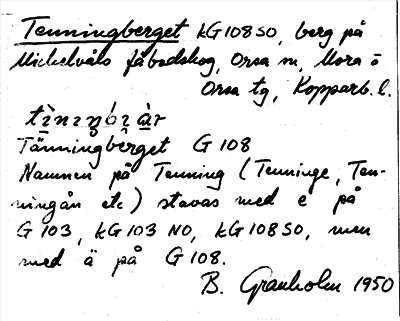 Tenningberget kG 108 SO, berg på
Mickelvåls fäbodskog, Orsa sn, Mora o
Orsa tg, Kopparb. l.
Tänningberget G 108
Namnen på Tenning (Tenninge, Ten-
ningån etc) stavas med e på
G 103, kG 103 NO, kG 108 SO, men
med ä på G 108.
B. Granholm 1950